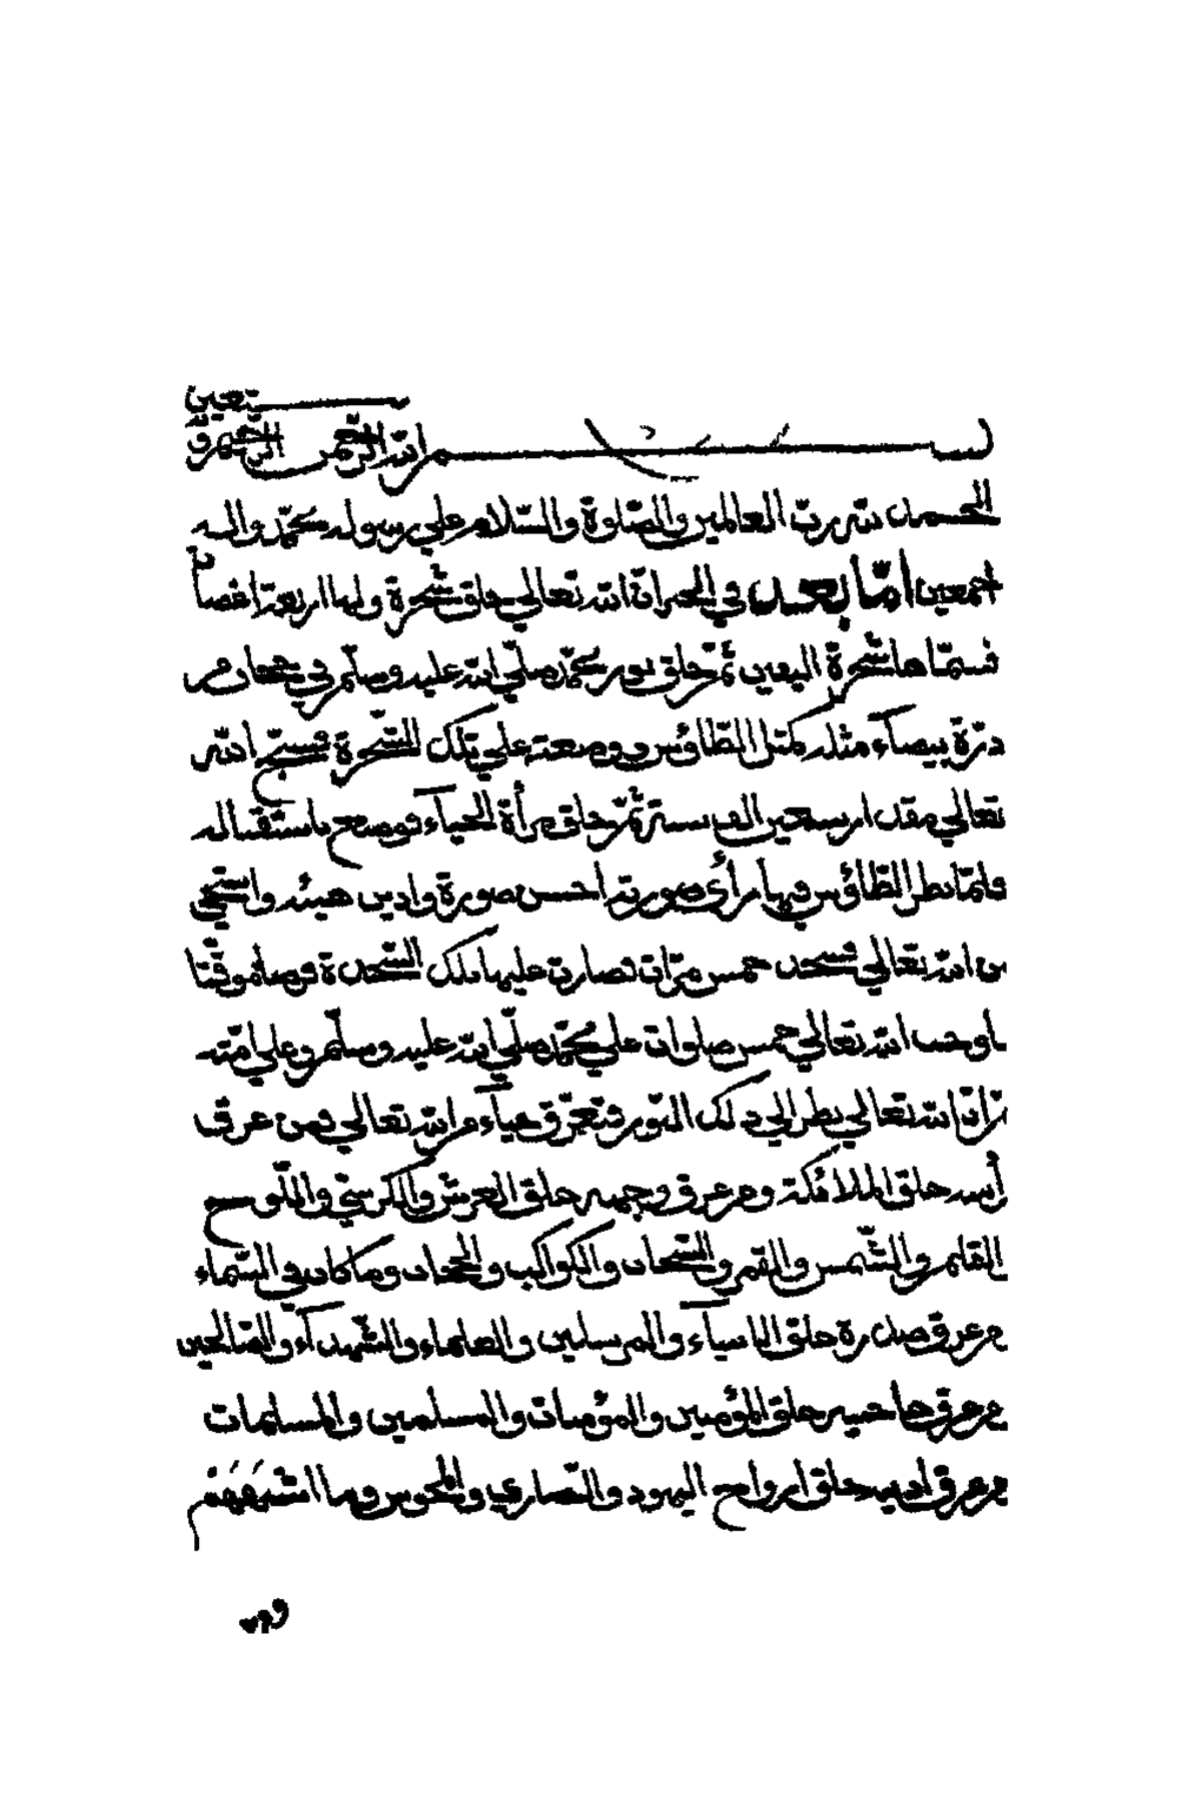 نستعين
بسم الله الرحمن الرحيم وبه
الحمد لله رب العالمين والصلوة والسلام علي رسوله محمد واله
اجمعين امّا بعد في الخبر انّ الله تعالي خلق شجرة ولها اربعة اغصان
فسمّاها شجرة اليقين ثمّ خلق نور محمّد صلّي الله عليه وسلّم في حجاب من
درّة بيضآء مثله كمثل الطّاؤس ووضعه علي تلك الشّجرة فسبّح الله
تعالي مقدار سبعين الف سنة ثمّ خلق مرأة الحيآء فوضع باستقباله
فلمّا نظر الطّاؤس فيها رأي صورته احسن صورة وازين هيئة واستحي
من الله تعالي فسجد خمس مرّات فصارت علينا تلك السّجدة فرضا موقّتا
فأوجب الله تعالي خمس صلوات علي محمّد صلّي الله عليه وسلّم وعلي امّته
ثمّ انّ الله تعالي نظر الي ذلك النّور فتعرّق حيآء من الله تعالي فمن عرق
رأسه خلق الملائكة ومن عرق وجهه خلق العرش والكرسيّ واللّوح
والقلم والشّمس والقمر والحجاب والكواكب وما كان في السّماء
ومن عرق صدره خلق الانبيآء والمرسلين والعلماء والشّهدآء والصّالحين
ومن عرق حاجبيه خلق المؤمنين والمؤمنات والمسلمين والمسلمات
ومن عرق اذنيه خلق ارواح اليهود والنّصاري والمجوس وما اشبههم
ومن